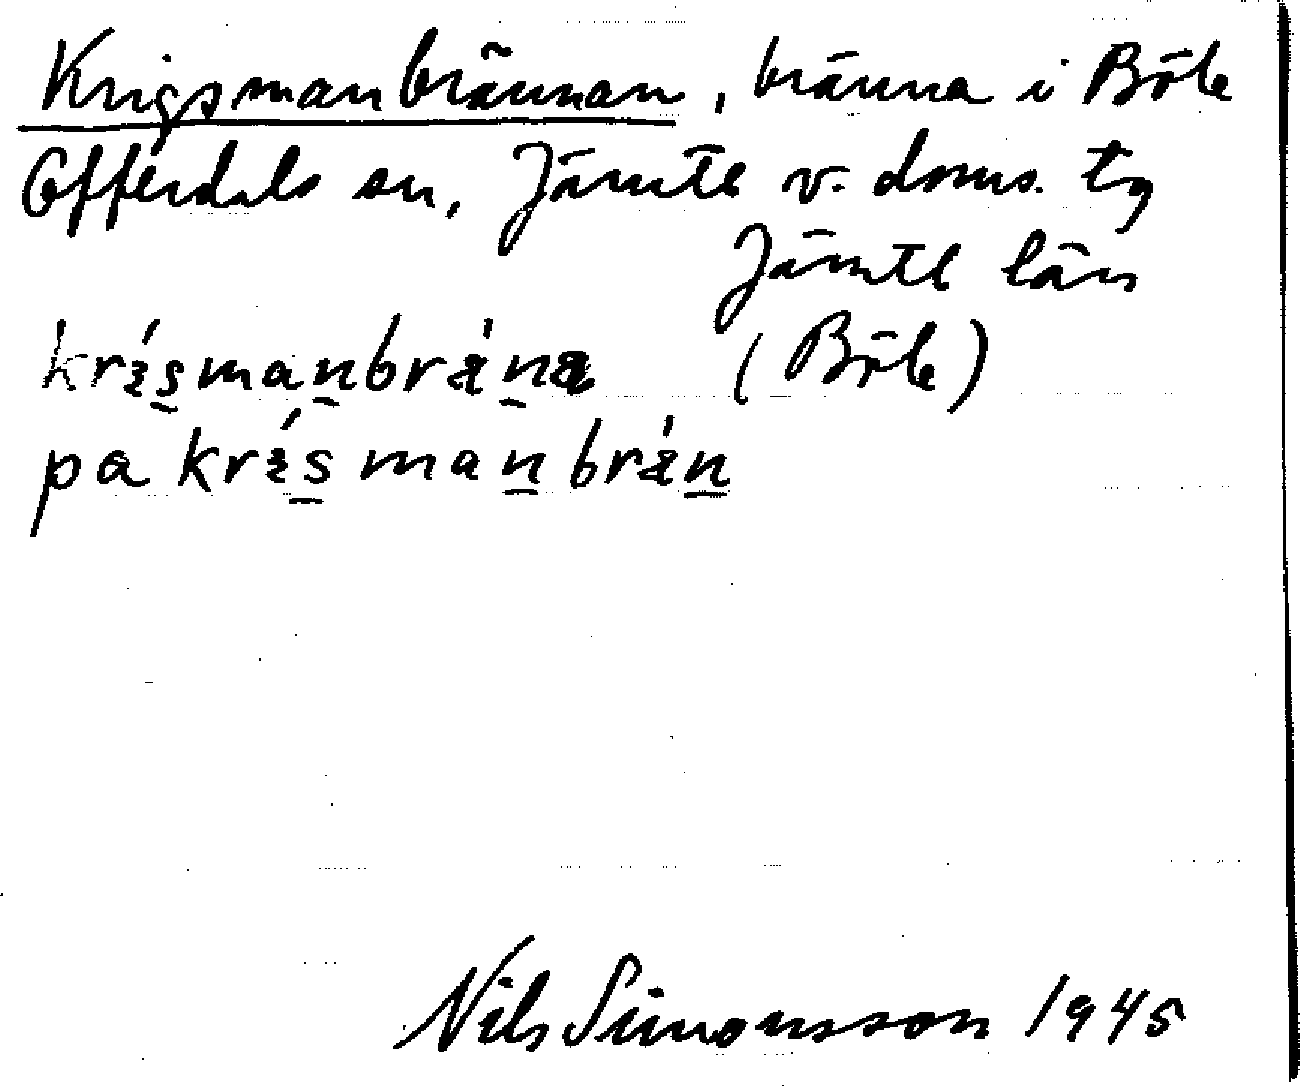 Krigsmanbrännan, bränna i Böle
Offerdals sn, Jämtl v. doms. tg
Jämtl län
krı́s̱maṉbrä́ṉa (Böle)
pa krı́s̱maṉbrä́ṉ
Nils Simonsson 1945